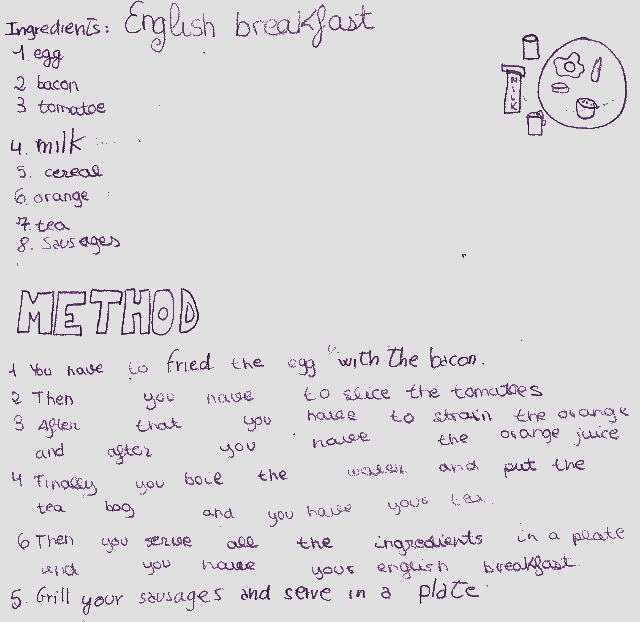 Ingredients: English breakfast
1 egg
2 bacon
3 tomatoe
4. milk
5. cereal
6. orange
7. tea
8. Sausages
MILK
METHOD
1 You have to fried the egg "with the bacon.
2 Then you have to slice the tomatoes
3 After that you have to strain the orange
and after you have the orange juice
4 Finally you boil the water and put the
tea bag and you have your tea.
6 Then you serve all the ingredients in a plate
and you have your english breakfast.
5. Grill your sausages and serve in a plate.